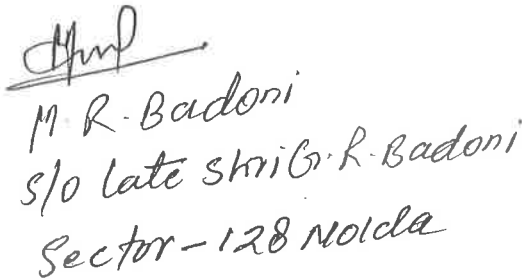 M. R. Badoni
S/o Late Shri G. R. Badoni
Sector-128 Noida